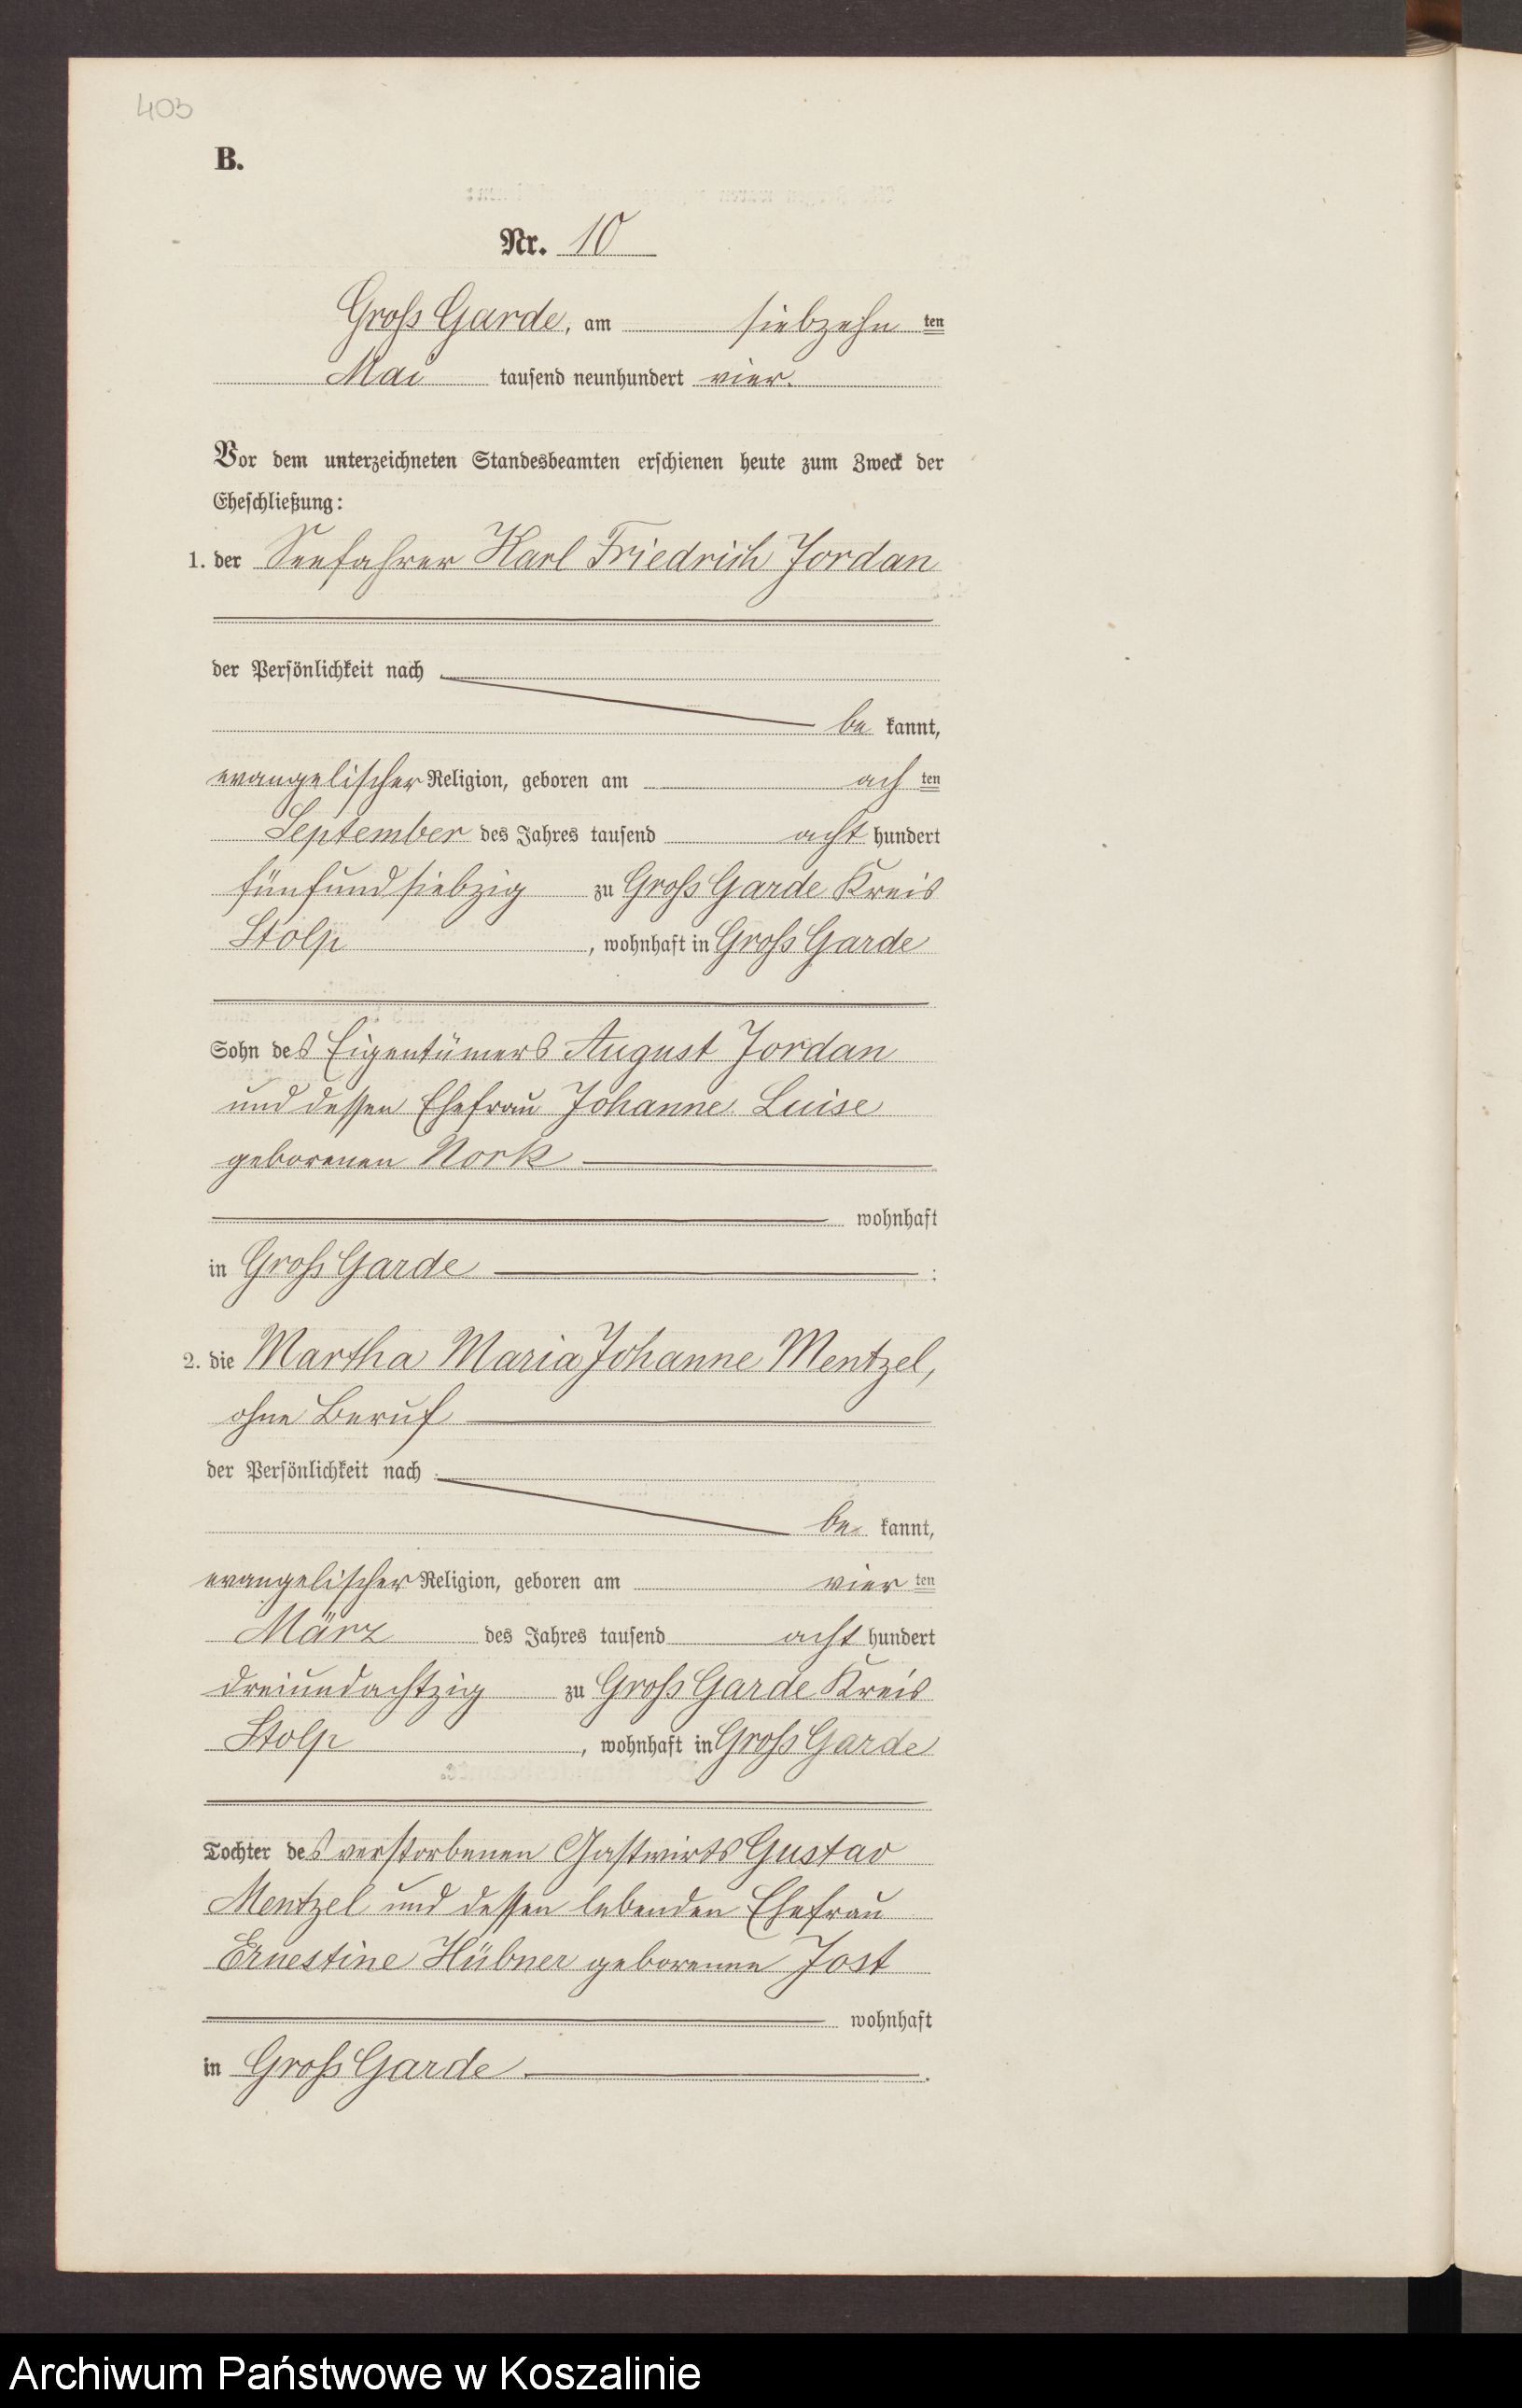 403
B.
Nr. 10
Gross Garde, am siebzehn ten
Mai tausend neunhundert vier.
Vor dem unterzeichneten Standesbeamten erschienen heute zum Zweck der
Eheschließung:
1. der Seefahrer Karl Friedrich Jordan
der Persönlichkeit nach
be kannt,
evangelischer Religion, geboren am ach ten
September des Jahres tausend acht hundert
fünfundsiebzig zu Gross Garde Kreis
Stolp, wohnhaft in Gross Garde
Sohn des Eigentümers August Jordan
und dessen Ehefrau Johanne Luise
geborenen Nork
wohnhaft
in Gross Garde :
2. die Martha Maria Johanne Mentzel,
ohne Beruf
der Persönlichkeit nach
be kannt,
evangelischer Religion, geboren am vier ten
März des Jahres tausend acht hundert
dreiundachtzig zu Gross Garde Kreis
Stolp, wohnhaft in Gross Garde
Tochter des verstorbenen Gastwirts Gustav
Mentzel und dessen lebenden Ehefrau
Ernestine Hübner geborenen Jost
wohnhaft
in Gross Garde.
Archiwum Państwowe w Koszalinie